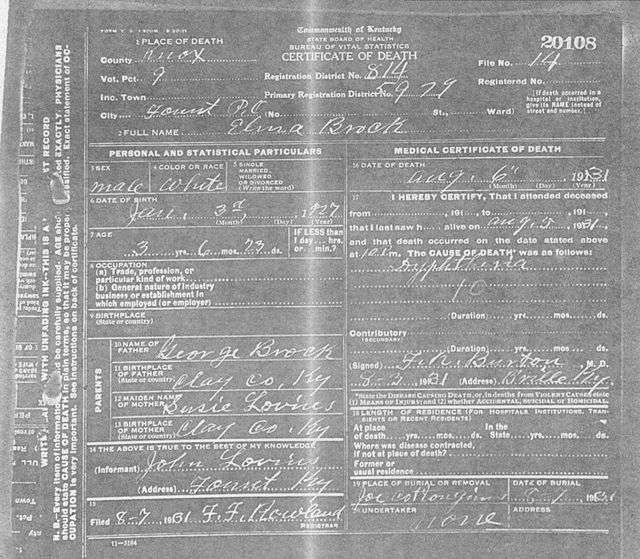 Commonwealth of Kentucky
STATE BOARD OF HEALTH
BUREAU OF VITAL STATISTICS
CERTIFICATE OF DEATH
20108
1 PLACE OF DEATH
County Knox
File No. 14
Vot. Pct. 9
Registration District No. 814
Registered No.
Inc. Town
Primary Registration District No. 5979
(If death occurred in a hospital or institution, give its NAME instead of street and number.)
City Fount P.O. No. St., Ward)
2 FULL NAME Elma Brock
PERSONAL AND STATISTICAL PARTICULARS
3 SEX male
4 COLOR OR RACE white
5 SINGLE MARRIED, WIDOWED OR DIVORCED (Write the word)
6 DATE OF BIRTH
Jan. 3rd, 1827
(Month) (Day) (Year)
7 AGE
3 yrs. 6 mos. 23 ds.
IF LESS than 1 day... hrs. or... min.?
8 OCCUPATION
(a) Trade, profession, or particular kind of work
(b) General nature of industry business or establishment in which employed (or employer)
9 BIRTHPLACE
(State or country)
PARENTS
10 NAME OF FATHER George Brock
11 BIRTHPLACE OF FATHER (State or country) Clay Co. Ky
12 MAIDEN NAME OF MOTHER Susie Loving
13 BIRTHPLACE OF MOTHER (State or country) Clay Co. Ky
14 THE ABOVE IS TRUE TO THE BEST OF MY KNOWLEDGE
(Informant) John Loving
(Address) Fount Ky
15
Filed 8-7 1931 F. F. Rowland
REGISTRAR
11—3184
MEDICAL CERTIFICATE OF DEATH
16 DATE OF DEATH
Aug. 6th 1931
(Month) (Day) (Year)
17 I HEREBY CERTIFY, That I attended deceased
from , 191 , to , 191 ,
that I last saw h alive on Aug. 5, 1931
and that death occurred on the date stated above
at 10 m. The CAUSE OF DEATH* was as follows:
(Duration) yrs. mos. ds.
Contributory
(SECONDARY)
(Duration) yrs. mos. ds.
(Signed) Burton M. D.
1931 (Address) Ky.
*State the DISEASE CAUSING DEATH, or, in deaths from VIOLENT CAUSES state (1) MEANS OF INJURY; and (2) whether ACCIDENTAL, SUICIDAL or HOMICIDAL
18 LENGTH OF RESIDENCE (FOR HOSPITALS, INSTITUTIONS, TRANSIENTS OR RECENT RESIDENTS)
At place of death yrs. mos. ds. In the State yrs. mos. ds.
Where was disease contracted, if not at place of death?
Former or usual residence
19 PLACE OF BURIAL OR REMOVAL
DATE OF BURIAL
1931
20 UNDERTAKER
ADDRESS
none